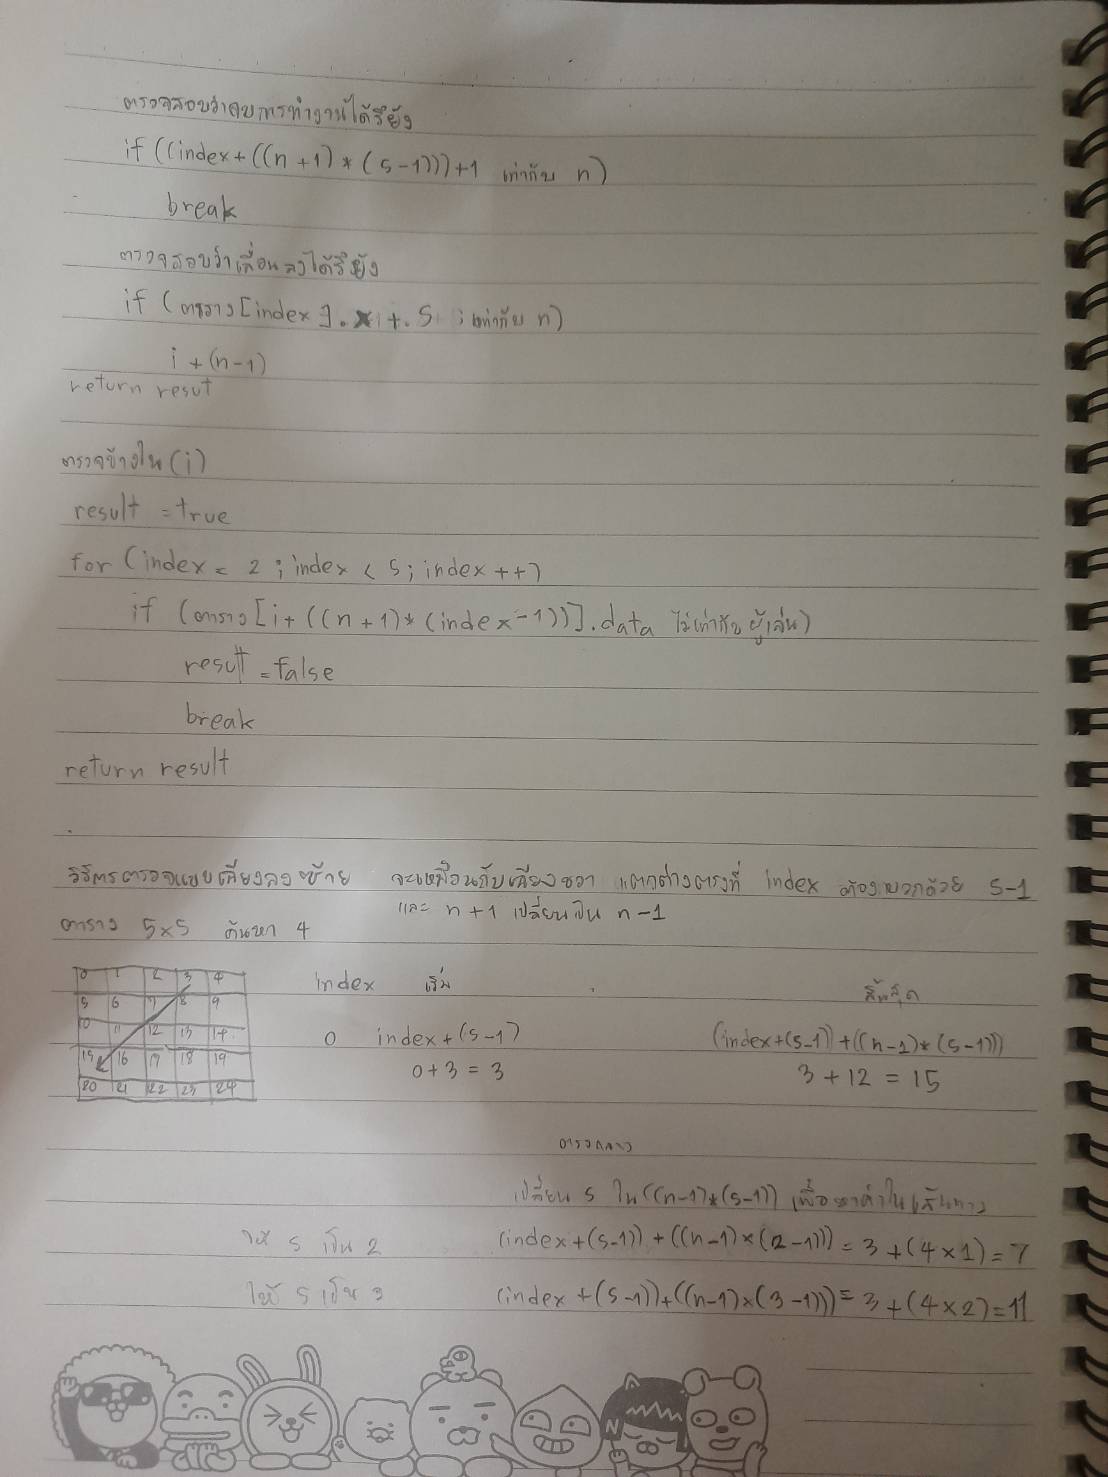 ตรวจสอบว่าจบการทำงานได้รึยัง
if ((index+((n+1)*(s-1)))+1 เท่ากับ n)
break
ตรวจสอบว่าเลื่อนลงได้รึยัง
if (ตาราง[index].x + s เท่ากับ n)
i + (n-1)
return resut
ตรวจข้างใน (i)
result = true
for (index = 2 ; index < s ; index ++)
if (ตาราง[i + ((n+1)*(index-1))].data ไม่เท่ากับ ผู้เล่น)
result = false
break
return result
วิธีการตรวจแบบเฉียงลงซ้าย จะเหมือนกับเฉียงขวา แตกต่างตรงที่ index ต้องบวกด้วย s-1
และ n+1 เปลี่ยนเป็น n-1
ตาราง 5x5 ค้นหา 4
0 1 2 3 4
5 6 7 8 9
10 11 12 13 14
15 16 17 18 19
20 21 22 23 24
index เริ่ม สิ้นสุด
0 index+(s-1) (index+(s-1))+((n-1)*(s-1)))
0+3 = 3 3+12 = 15
ตรงกลาง
เปลี่ยน s ใน ((n-1)*(s-1)) เพื่อหาค่าในเส้นทาง
ให้ s เป็น 2 (index+(s-1)) + ((n-1)×(2-1))) = 3+(4×1) = 7
ให้ s เป็น 3 (index+(s-1))+((n-1)×(3-1))) = 3+(4×2) = 11